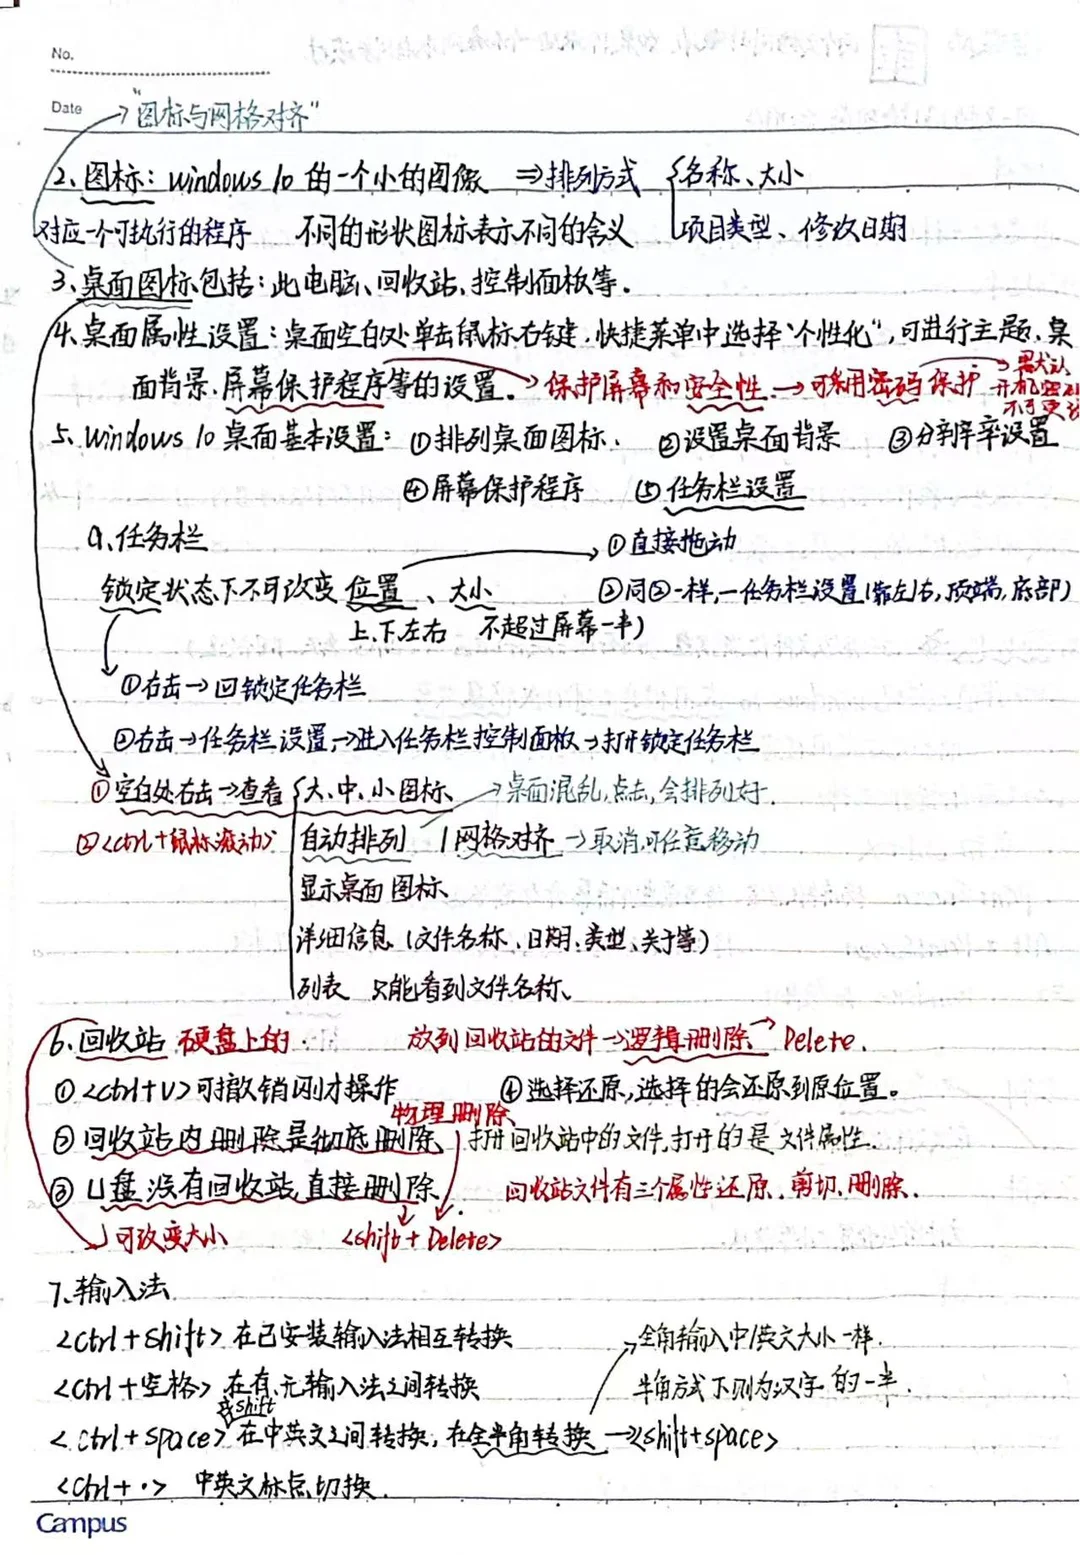 No.
Date
"图标与网格对齐"
2、图标：windows 10 的一个小的图像 ⇒排列方式 {名称、大小
对应一个可执行的程序 不同的形状图标表示不同的含义 项目类型、修改日期
3、桌面图标包括：此电脑、回收站、控制面板等。
4、桌面属性设置：桌面空白处单击鼠标右键，快捷菜单中选择"个性化"，可进行主题、桌
面背景、屏幕保护程序等的设置。→保护屏幕和安全性→可采用密码保护→默认
开机密码
不可更改
5、windows 10 桌面基本设置：①排列桌面图标. ②设置桌面背景 ③分辨率设置
④屏幕保护程序 ⑤任务栏设置
a、任务栏 →①直接拖动
锁定状态下不可改变 位置、大小 ②同②一样,一任务栏设置(靠左右,顶端,底部)
上、下、左右 不超过屏幕一半)
①右击→回锁定任务栏
②右击→任务栏设置→进入任务栏控制面板→打开锁定任务栏
①空白处右击→查看 {大、中、小图标、 →桌面混乱,点击,会排列好.
②<ctrl+鼠标滚动> 自动排列 | 网格对齐 →取消,可任意移动
显示桌面图标
详细信息 (文件名称、日期、类型、关于等)
列表 只能看到文件名称、
6、回收站 硬盘上的. 放到回收站的文件→逻辑删除→Delete.
①<ctrl+v>可撤销刚才操作 ④选择还原,选择的会还原到原位置。
物理删除
②回收站内删除是彻底删除、 打开回收站中的文件,打开的是文件属性.
③U盘没有回收站,直接删除、 回收站文件有三个属性还原、剪切、删除.
可改变大小 <shift+Delete>
7、输入法
<ctrl+shift>在已安装输入法相互转换 →全角输入中/英文大小一样.
<ctrl+空格>在有、无输入法之间转换 半角方式下则为汉字的一半.
或shift
<ctrl+space>在中英文之间转换,在全半角转换→<shift+space>
<ctrl+·> 中英文标点切换.
Campus